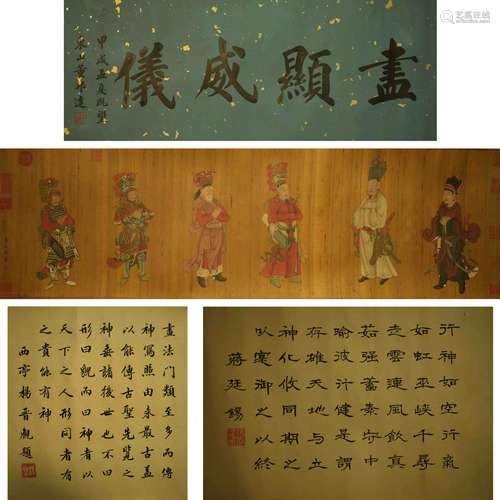 艺狐在线
盡顯威儀
甲戌孟夏既望
東山董邦達
畫法門類至多而傳
神寫照由來最古蓋
以能傳古聖先賢之
神垂諸後世也不曰
形曰貌而曰神者以
天下之人形同者有
之貴能有神
西亭楊晉觀題
行神如空行氣
如虹巫峽千尋
走雲連風飲真
茹強蓄素守中
喻彼行健是謂
存雄天地與立
神化攸同期之
以實御之以終
蔣廷錫